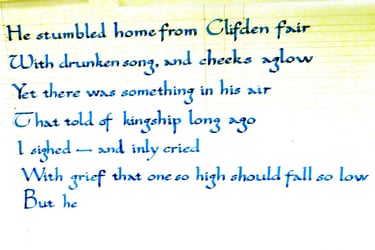 He stumbled home from Clifden fair
With drunken song, and cheeks aglow
Yet there was something in his air
That told of kingship long ago
I sighed — and inly cried
With grief that one so high should fall so low
But he